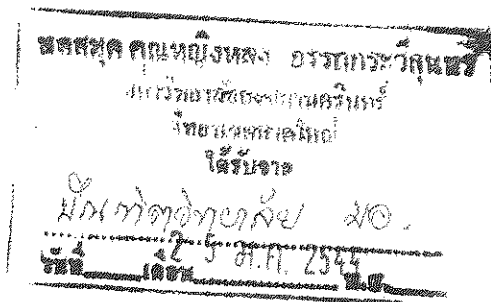 หอสมุด คุณหญิงหลง อรรถกระวีสุนทร
มหาวิทยาลัยสงขลานครินทร์
วิทยาเขตหาดใหญ่
ได้รับจาก
บัณฑิตวิทยาลัย มอ.
2 5 ม.ค. 2544
วันที่ เดือน พ.ศ.